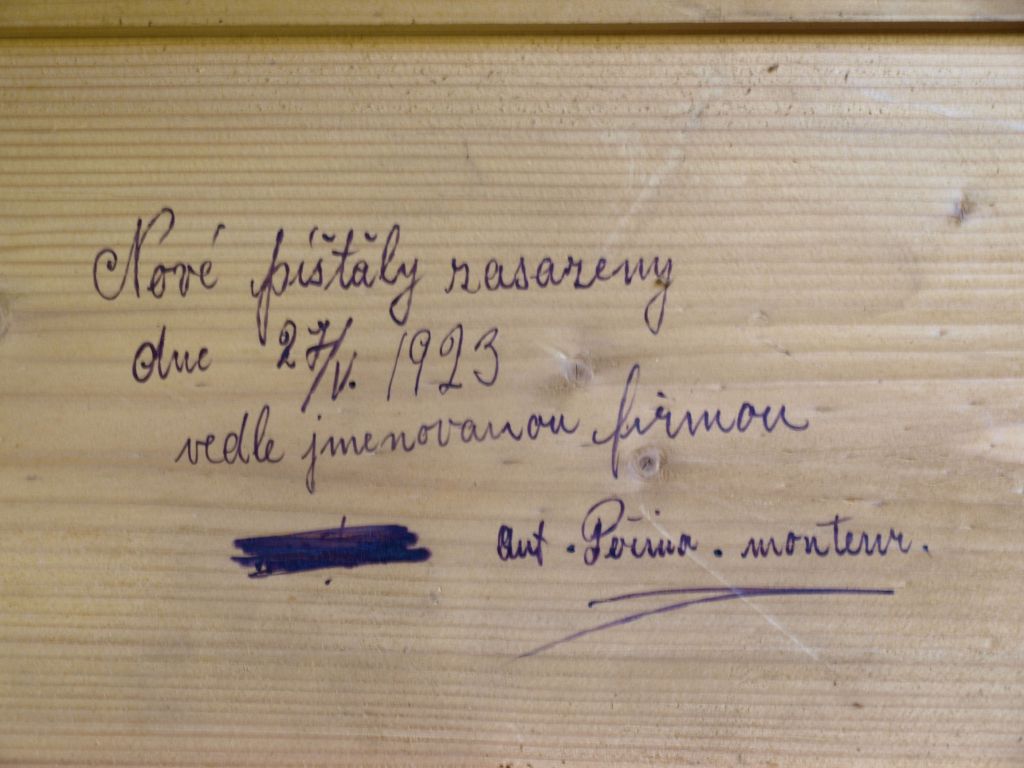 Nové píšťály zasazeny
dne 27/V. 1923
vedle jmenovanou firmou
Ant. monteur.